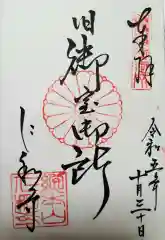 奉拝
旧御室御所
仁和寺
令和五年
十月三十日